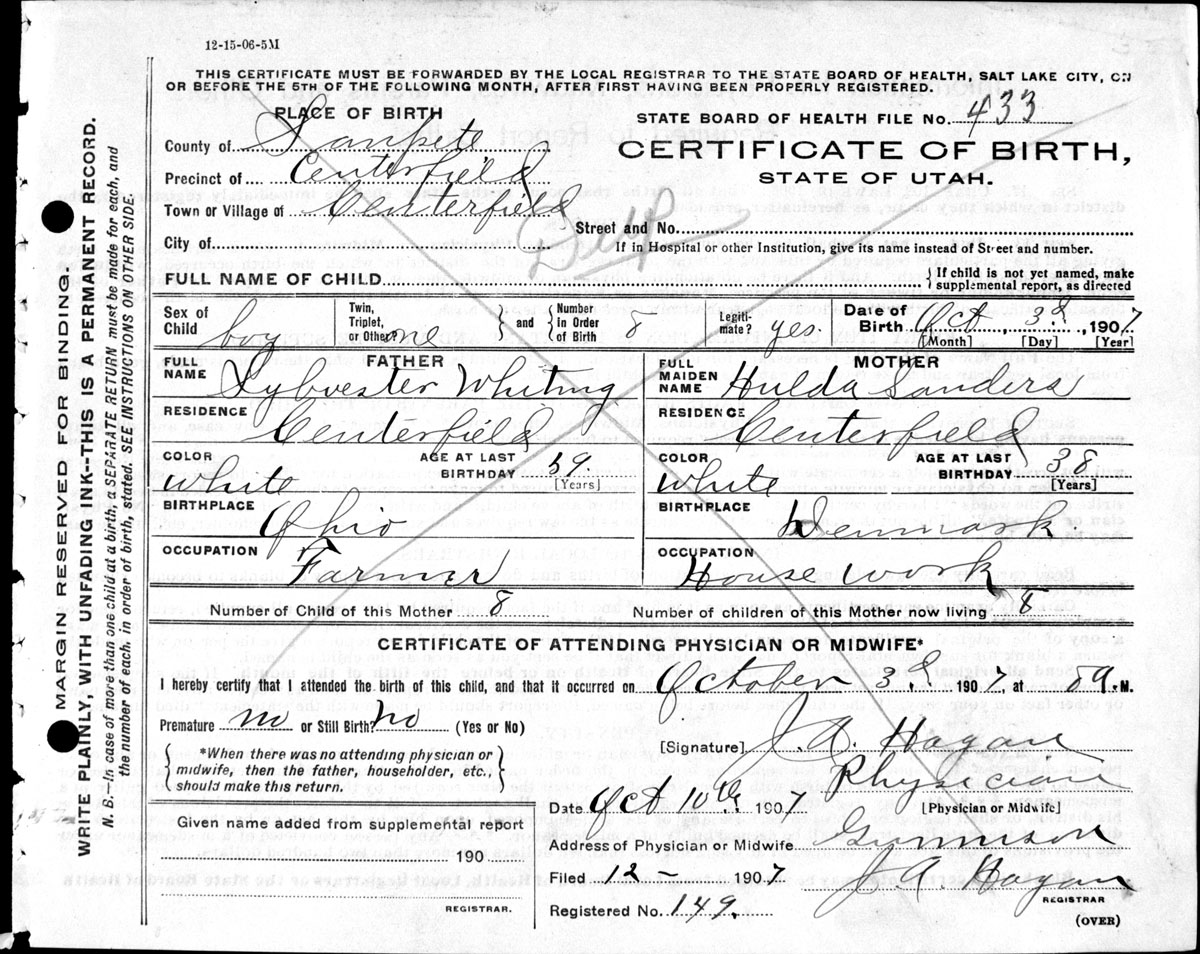 12-15-06-5M
THIS CERTIFICATE MUST BE FORWARDED BY THE LOCAL REGISTRAR TO THE STATE BOARD OF HEALTH, SALT LAKE CITY, ON
OR BEFORE THE 5TH OF THE FOLLOWING MONTH, AFTER FIRST HAVING BEEN PROPERLY REGISTERED.
PLACE OF BIRTH
STATE BOARD OF HEALTH FILE No. 433
County of Sanpete
CERTIFICATE OF BIRTH,
STATE OF UTAH.
Precinct of Centerfield
Town or Village of Centerfield
Dup
Street and No.
City of
If in Hospital or other Institution, give its name instead of Street and number.
FULL NAME OF CHILD
If child is not yet named, make
supplemental report, as directed
Sex of Child boy
Twin, Triplet, or Other? one
and
Number in Order of Birth 8
Legiti-mate? yes
Date of Birth Oct, 3d 1907
[Month] [Day] [Year]
FATHER
FULL NAME Sylvester Whiting
MOTHER
FULL MAIDEN NAME Hulda Sanders
RESIDENCE Centerfield
RESIDENCE Centerfield
COLOR white
AGE AT LAST BIRTHDAY 59
[Years]
COLOR white
AGE AT LAST BIRTHDAY 38
[Years]
BIRTHPLACE Ohio
BIRTHPLACE Denmark
OCCUPATION Farmer
OCCUPATION House work
Number of Child of this Mother 8
Number of children of this Mother now living 8
CERTIFICATE OF ATTENDING PHYSICIAN OR MIDWIFE*
I hereby certify that I attended the birth of this child, and that it occurred on October 3d 1907, at 8 a. M.
Premature no or Still Birth? no (Yes or No)
*When there was no attending physician or
midwife, then the father, householder, etc.,
should make this return.
[Signature] J. A. Hagan
Physician
Date Oct 10th 1907
[Physician or Midwife]
Given name added from supplemental report
190
REGISTRAR.
Address of Physician or Midwife Gunnison
Filed 12- 1907
J. A. Hagan
REGISTRAR
Registered No. 149.
(OVER)
MARGIN RESERVED FOR BINDING.
WRITE PLAINLY, WITH UNFADING INK--THIS IS A PERMANENT RECORD.
N. B.--In case of more than one child at a birth, a SEPARATE RETURN must be made for each, and
the number of each, in order of birth, stated. SEE INSTRUCTIONS ON OTHER SIDE.